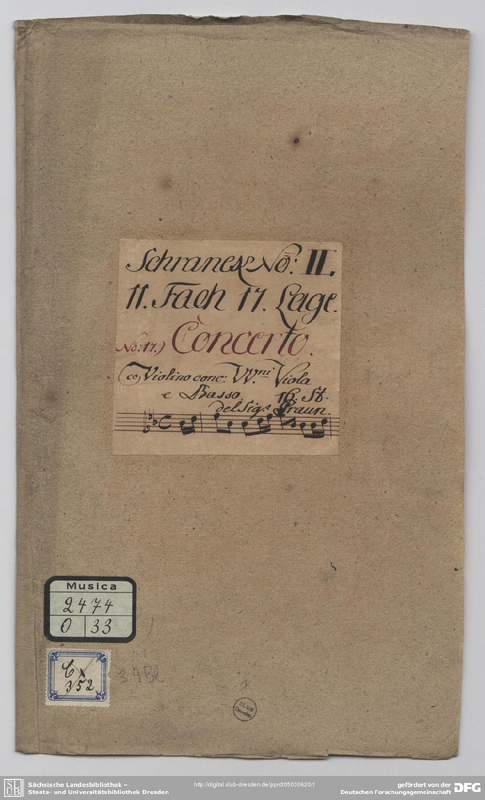 Schranck No: II.
11. Fach 17. Lage.
No: 17.) Concerto.
co Violino conc: VV.ni Viola
e Basso. 16. St.
del Sigr. Graun.
Musica
2474
O 33
Cx
352
34 Bl
Sächsische Landesbibliothek –
Staats- und Universitätsbibliothek Dresden
http://digital.slub-dresden.de/ppn305030620/1
gefördert von der
Deutschen Forschungsgemeinschaft
DFG